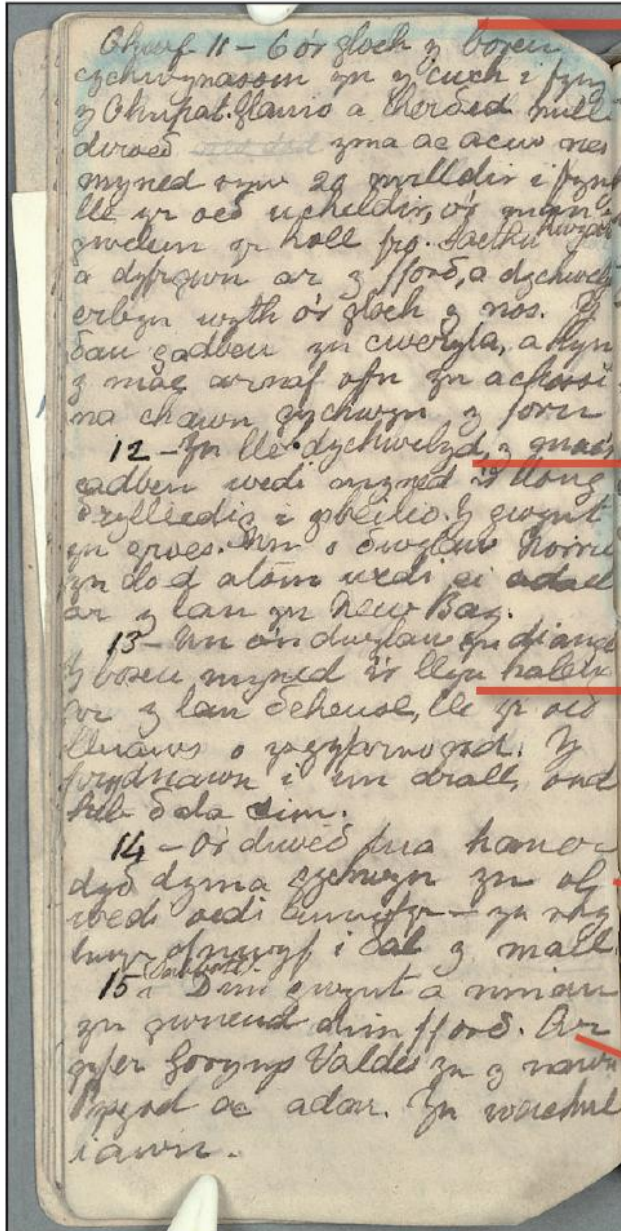 Chwef 11 – 6 o'r gloch y boreu
cychwynasom yn y cwch i fyny
y Chupat. Glanio a cherðed mill
diroeð yma ac acw nes
myned ryw 20 milldir i fyny
lle yr oeð ucheldir, o'r man
gwelem yr holl fro. Saethu hwyaid
a dyfrgwn ar y fforð, a dychwely
erbyn wyth o'r gloch y nos. Y
ðau gadben yn cweryla, a hyn
y mae arnaf ofn yn achosi
na chawn gychwyn y foru
12 – Yn lle dychwelyd, y mae'r
cadben wedi myned i'r llong
ðrylliedig i ysbeilio. Y gwynt
yn groes. Un o ðwylaw
yn dod atom wedi ei adael
ar y lan yn New Bay.
13 – Un o'n dwylaw yn diangc
Y boreu myned i'r llyn halen
ar y lan ðeheuol, lle yr oeð
lluaws o ysgyfarnogod. Y
prydnawn i un arall, ond
heb ða i ðim.
14 – O'r diweð tua haner
dyð dyma gychwyn yn ol
wedi oedi – yn rhy
hwyr ofnwyf i ðal y mall
15 – Sabboth. Dim gwynt a ninau
yn gwneud dim fforð. Ar
gyfer Gorynys Valdes yn y nawn
Pysgod ac adar. Yn wachul
iawn.